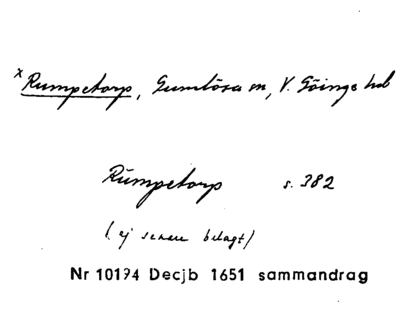 x Rumpetorp, Gumlösa sn, V. Göinge hd
Rumpetorp s. 382
(ej senare belagt)
Nr 10194 Decjb 1651 sammandrag